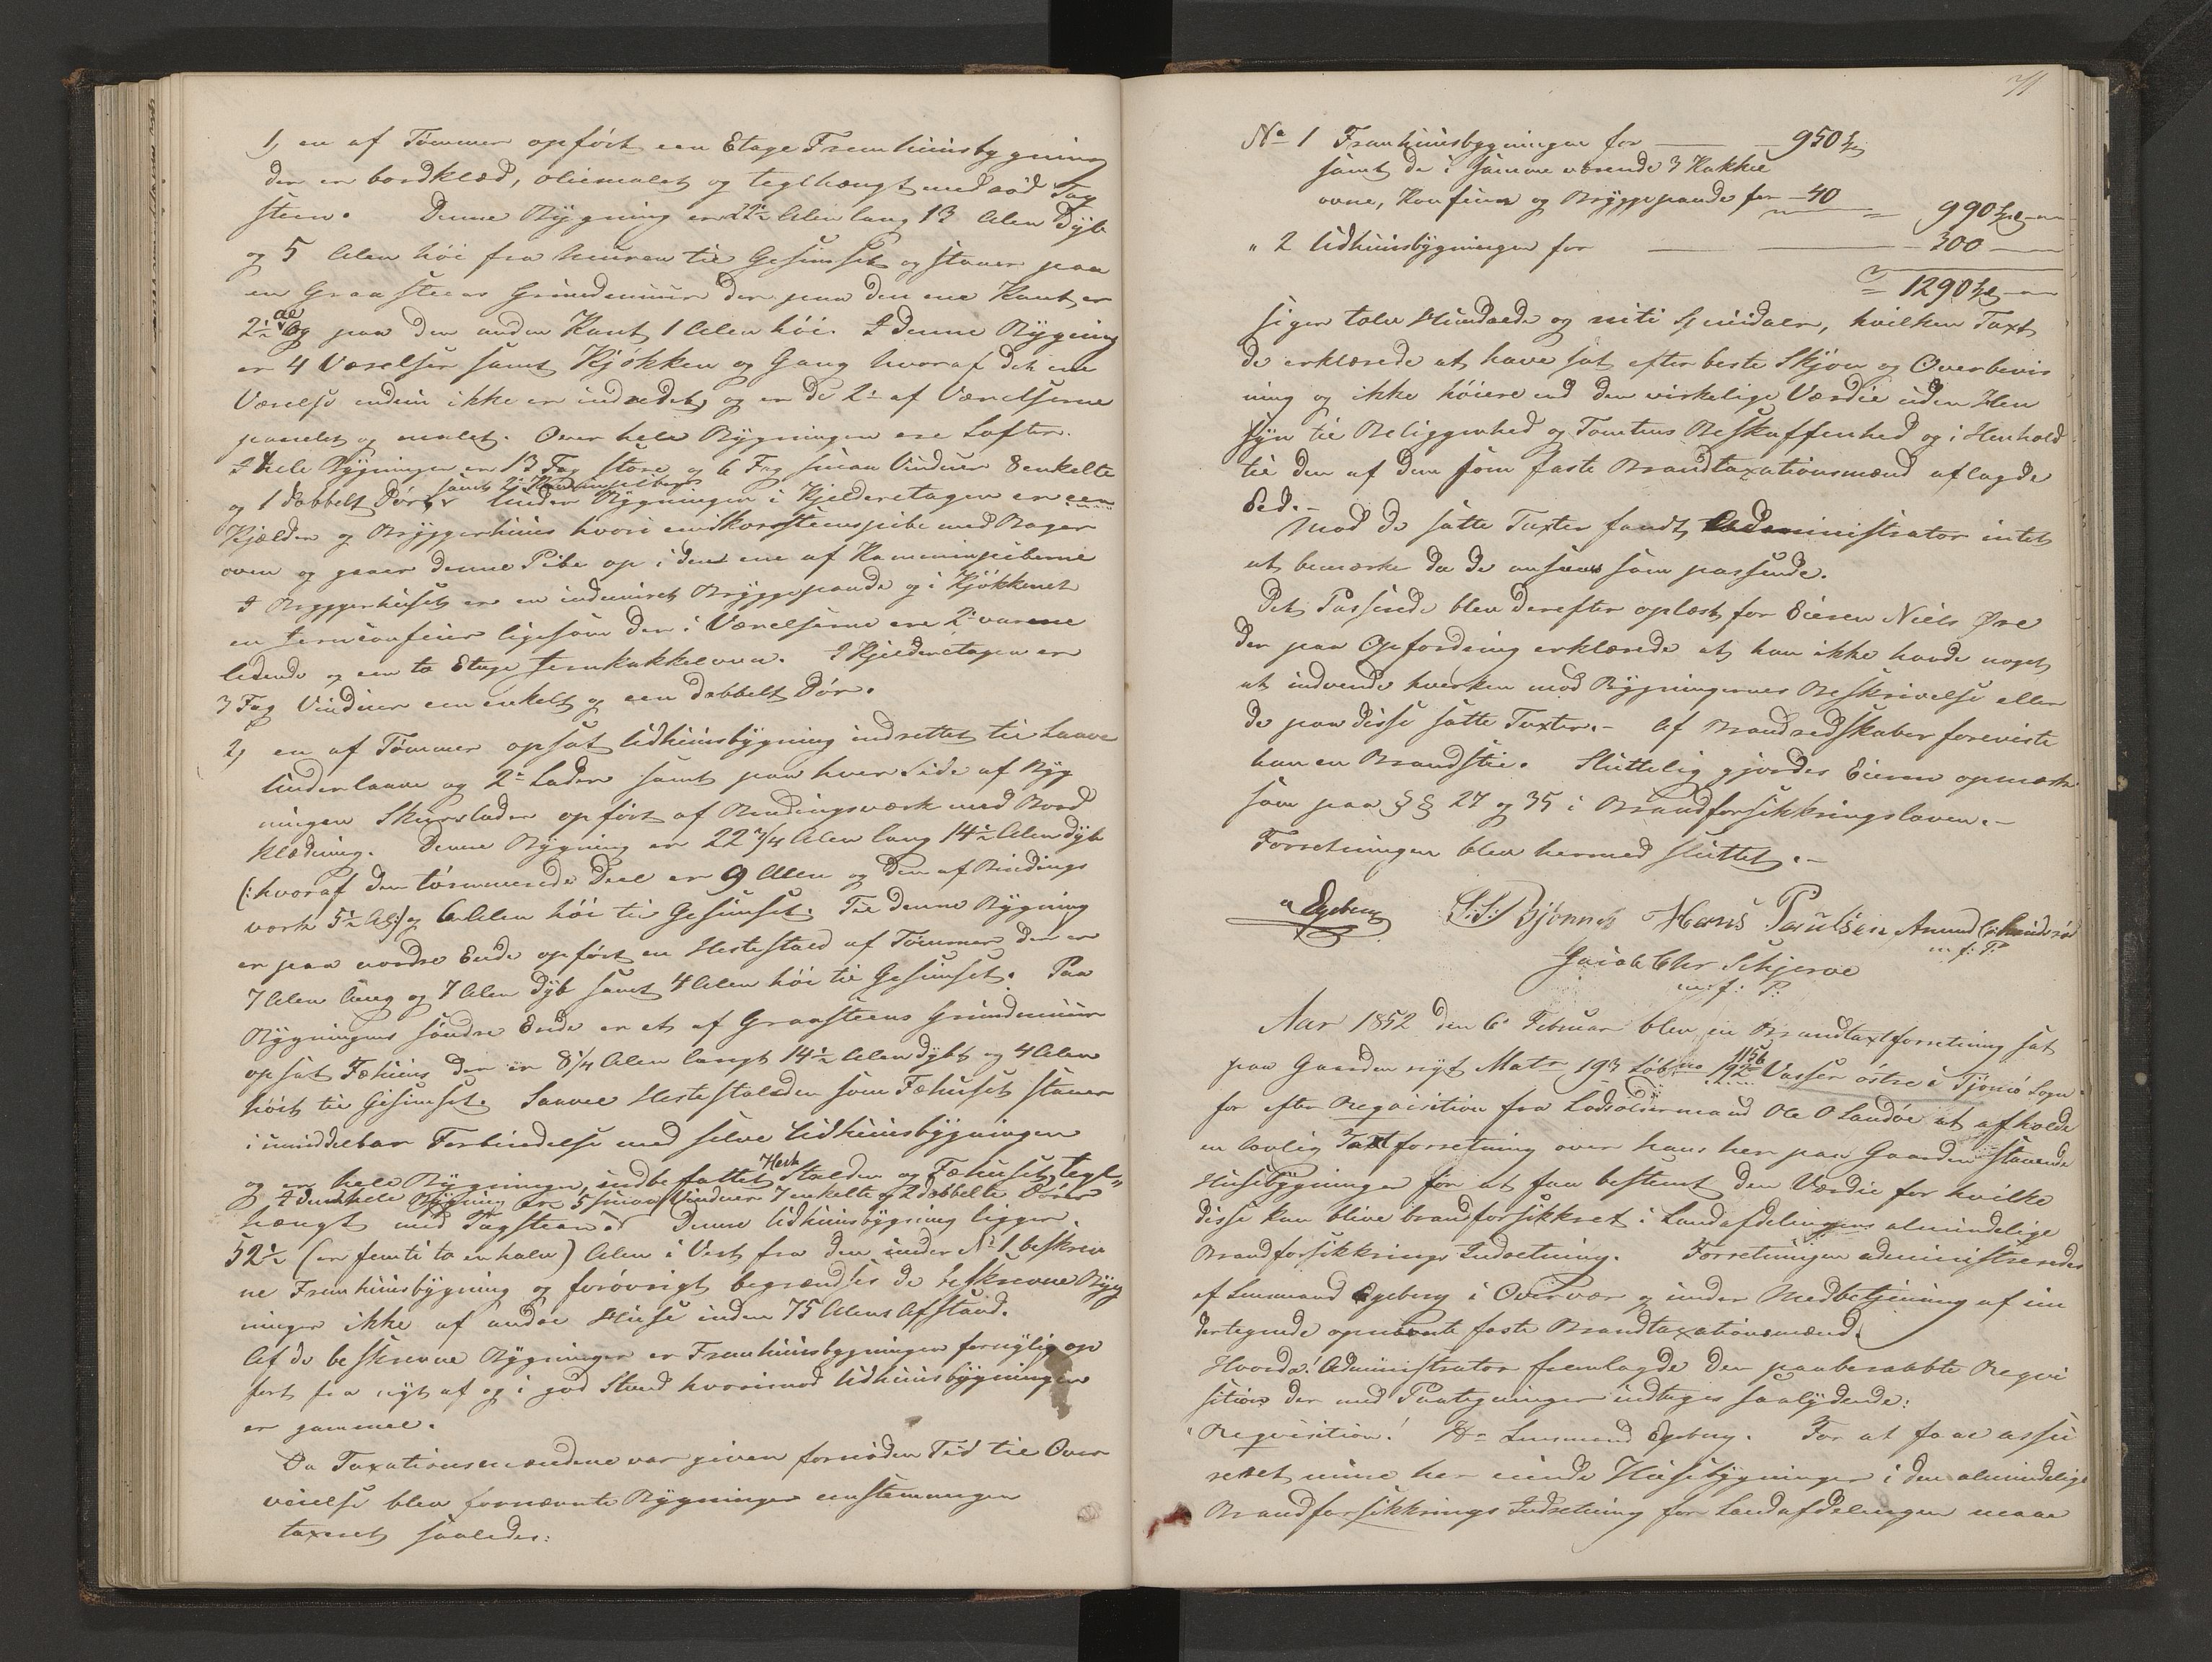 1, en af Tømmer opført een Etage Fremhuusbygning
der er bordklæd, oliemalet og teglhængt med rød Tag
steen. Denne Bygning er 22½ Alen lang 13 Alen Dyb
og 5 Alen høi fra Muren til Gesimset og staaer paa
en Graasteens Grundmuur der paa den ene Kant er
2½ al og paa den anden Kant 1 Alen høi. I denne Bygning
er 4 Værelser samt Kjøkken og Gang hvoraf det ene
Værelse endnu ikke er indredet, og er de 2 af Værelserne
panelet og malet. Over hele Bygningen ere Lofter.
I hele Bygningen er 13 Fag store og 6 Fag smaa Vinduer 8 enkelte
og 1 dobbelt Dør samt 2 Kaminpiber. Under Bygningen i Kjelderetagen er een
Kjælder og Bryggerhuus hvori een Skorsteenspibe med Bager
oven og gaaer denne Pibe op i den ene af Kaminpiberne
I Bryggerhuset er en indmuret Bryggepande og i Kjøkkenet
en Jerncomfuur ligesom der i Værelserne ere 2 varme
ledende og een to Etage Jernkakkelovn. I Kjelderetagen er
3 Fag Vinduer een enkelt og een dobbelt Dør.
2, en af Tømmer opsat Udhuusbygning indrettet til Laave
Underlaave og 2 Lader samt paa hver Side af Byg
ningen Skurslader opført af Bindingsværk med Bord
klædning. Denne Bygning er 22 3/4 Alen lang 14½ Alen dyb
(: hvoraf den tømmerede Deel er 9 Alen og den af Bindings
værk 5½ Al:) og 6 Alen høi til Gesimset. Til denne Bygning
er paa nordre Ende opført en Hestestald af Tømmer der er
7 Alen lang og 7 Alen dyb samt 4 Alen høi til Gesimset. Paa
Bygningens søndre Ende er et af Graasteens Grundmuur
opsat Fæhuus der er 8 1/4 Alen langt 14½ Alen dybt og 4 Alen
høit til Gesimset. Saavel Hestestalden som Fæhuset staaer
i umiddelbar Forbindelse med selve Udhuusbygningen
og er hele Bygningen indbefattet Heste Stalden og Fæhuset tegl-
I denne hele Bygning ere 5 smaa Vinduer 7 enkelte og 2 dobbelte Døre
hængt med Tagsteen. Denne Udhuusbygning ligger
52½ (er femti to en halv) Alen i Vest fra den under No 1 beskrev
ne Fremhuusbygning og forøvrigt begrændses de beskrevne Byg
ninger ikke af andre Huse inden 75 Alens Afstand.
Af de beskrevne Bygninger er Fremhuusbygningen fornylig op
ført fra nyt af og i god Stand hvorimod Udhuusbygningen
er gammel.
Da Taxationsmændene var given fornøden Tid til Over
veielse blev fornævnte Bygninger eenstemmigen
taxeret saaledes:
No 1 Fremhuusbygningen for — 950
samt de i samme værende 3 Kakkel
ovne, Komfuur og Bryggepande for - 40
990
" 2 Udhuusbygningen for — 300
1290
siger tolv Hundrede og niti Speciedaler, hvilken Taxt
de erklærede at have sat efter beste Skjøn og Overbeviis
ning og ikke høiere end den virkelige Værdie uden Hen
syn til Beliggenhed og Tomtens Beskaffenhed og i Henhold
til den af dem som faste Brandtaxationsmænd aflagde
Eed.-
Mod de satte Taxter fandt Administrator intet
at bemærke da de ansaaes som passende.
Det Passerede blev derefter oplæst for Eieren Niels Øre
der paa Opfordring erklærede at han ikke havde noget
at indvende hverken mod Bygningernes Beskrivelse eller
de paa disse satte Taxter.- Af Brandredskaber foreviste
han en Brandstie. Sluttelig gjordes Eieren opmærk
som paa §§ 27 og 35 i Brandforsikkringsloven.-
Forretningen blev hermed sluttet.-
Egeberg S:S: Bjønnes Hans Paulsen Amund
m: f: P:
Jacob Chr Schjerve
m: f: P:
Aar 1852 den 6 Februar blev en Brandtaxtforretning sat
paa Gaarden nyt Matr 193 Løbno 192 115b Vasser østre i Tjømø Sogn
for efter Reqvisition fra Lodsoldermand Ole O Sandøe at afholde
en lovlig Taxtforretning over hans her paa Gaarden staaende
Huusebygninger for at faa bestemt den Værdie for hvilke
disse kan blive brandforsikkret i Landafdelingens almindelige
Brandforsikkrings Indretning. Forretningen administreredes
af Lensmand Egeberg i Overvær og under Medbetjening af un
dertegnede opnævnte faste Brandtaxationsmænd.
Hvorda! Administrator fremlagde den paaberaabte Reqvi
sition der med Paategninger indtages saalydende:
"Reqvisition! Hr Lensmand Egeberg. For at faae assu
reret mine her eiende Huusebygninger i den almindelige
Brandforsikkrings Indretning for Landafdelingen maae